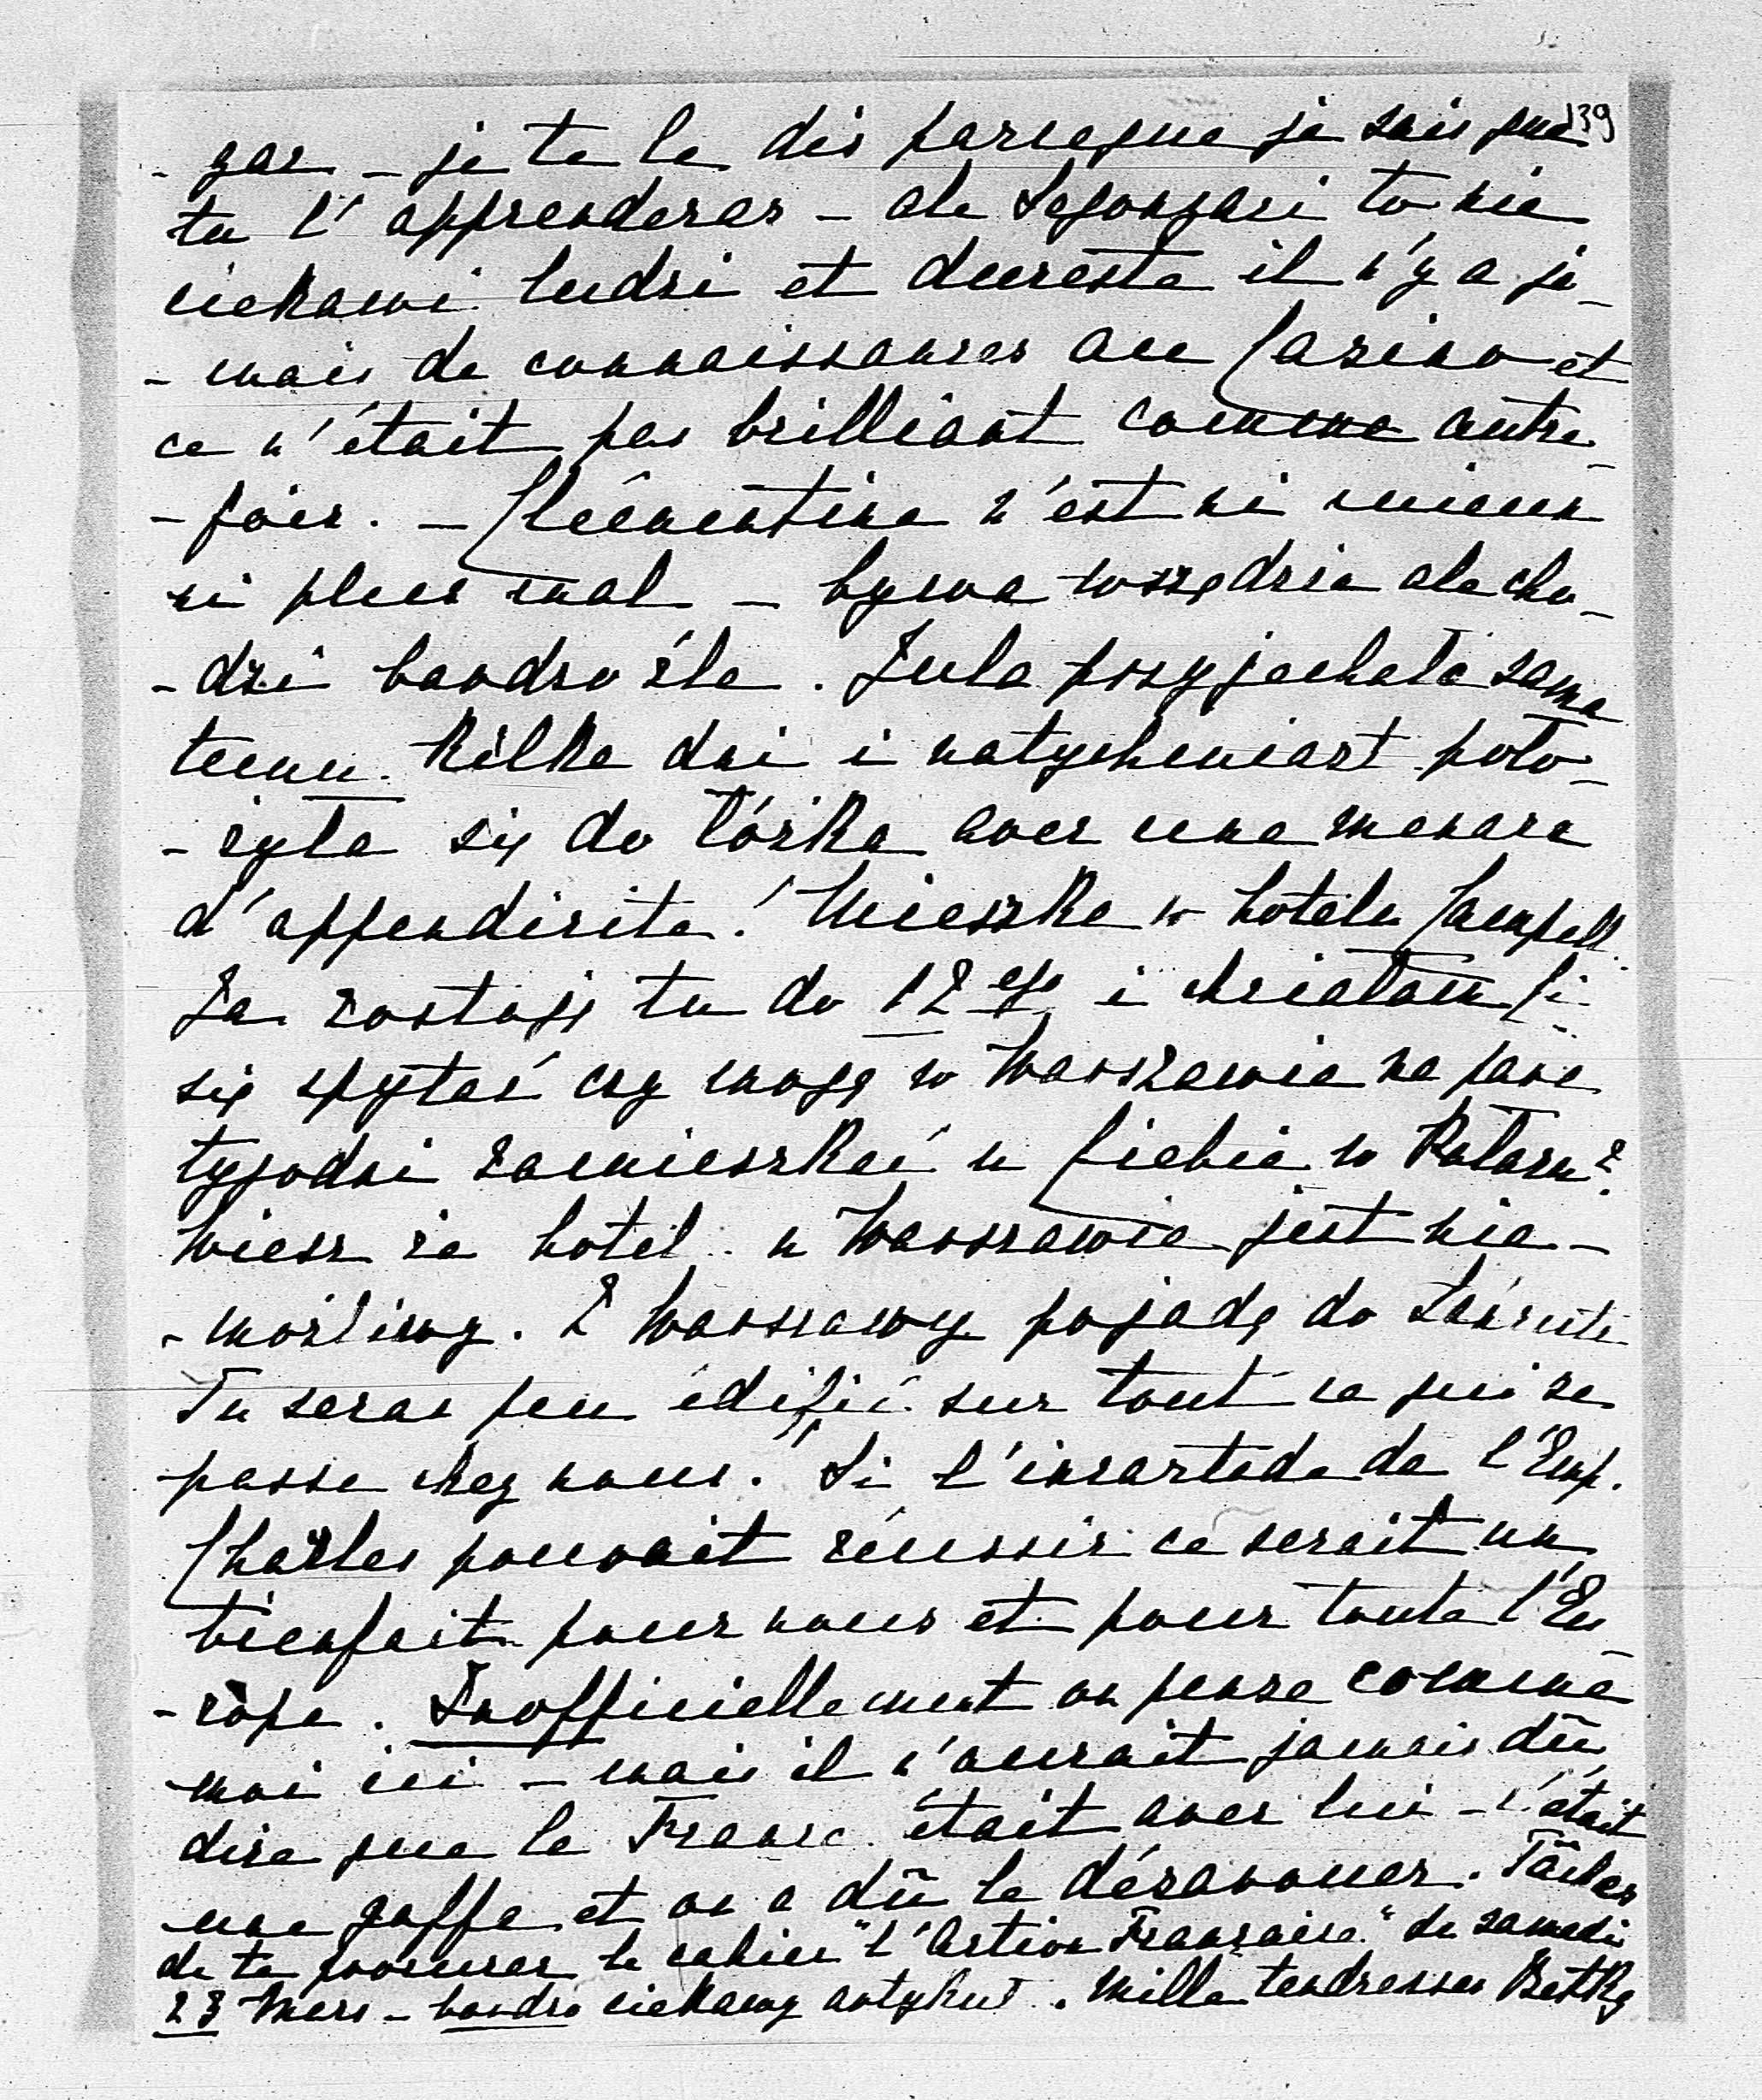 139
- gar - je te le dis parceque je sais que
tu l'apprenderas - ale Segonzaci to nie
ciekawi ludzi et dureste il n'y a ja-
- mais de connaissances au Casino et
ce n'était pas brilliant comme autre-
- fois. - Cléementine n'est ni mieux
ni plus mal - bywa wszędzie ale cho-
- dzi bardzo źle. Jula przyjechała sama
temu kilka dni i natychmiast poło-
- żyła się do łóżka avec une menace
d'appendicite! Mieszka w hotelu Campell.
Ja zostaję tu do 12ego i chciałam Ci
się spytać czy mogę w Warszawie na parę
tygodni zamieszkać u Ciebie w Pałacu?
Wiesz że hotel w Warszawie jest nie-
- możliwy. Z Warszawy pojadę do Łańcuta
Tu seras peu édifié sur tout ce qui se
passe chez nous. Si l'incartade de l'Emp.
Charles pouvait réussir ce serait un
bienfait pour nous et pour toute l'Eu-
- rope. Inofficiellement on pense comme
moi ici - mais il n'aurait jamais dû
dire que la France était avec lui - c'était
une gaffe et on a dû le désavouer. Tâches
de te procurer le cahier "l'Action Française" de samedi
23 Mars - bardzo ciekawy artykuł. Mille tendresses Betka